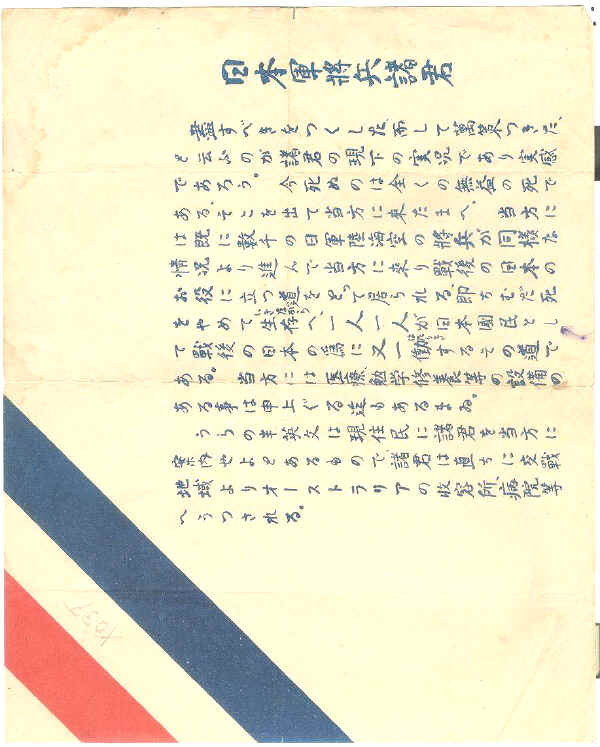 日本軍將兵諸君
盡すべきをつくした而して萬策つきた、
と云ふのが諸君の現下の実況であり実感
であろう。今死ぬのは全くの無益の死で
ある、そこを出て当方に来たまへ、当方に
は既に数千の日軍陸海空の將兵が同様な
情況より進んで当方に来り戰後の日本の
お役に立つ道をとって居られる、即ちむだ死
をやめて生存へ、一人一人が日本國民とし
て戰後の日本の為に又一働するその道で
ある。当方には医療、勉学、修養等の設備の
ある事は申上ぐる迄もあるまゐ。
うらの半英文は現住民に諸君を当方に
案内せよとあるもので諸君は直ちに交戰
地域よりオーストラリアの收容所、病院等
へうつされる。